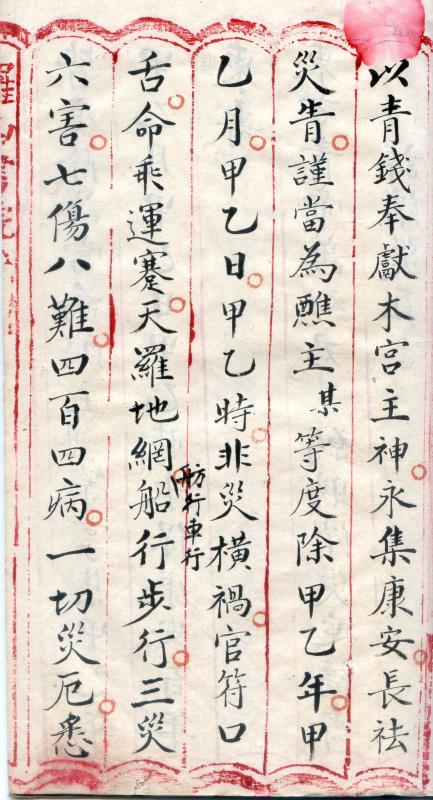 以青錢奉獻木宮主神永集康安長祛
災眚謹當為醮主某等度除甲乙年甲
乙月甲乙日甲乙時非災橫禍官符口
舌命乖運蹇天羅地網船行步行三災
舫行車行
六害七傷八難四百四病一切災厄悉